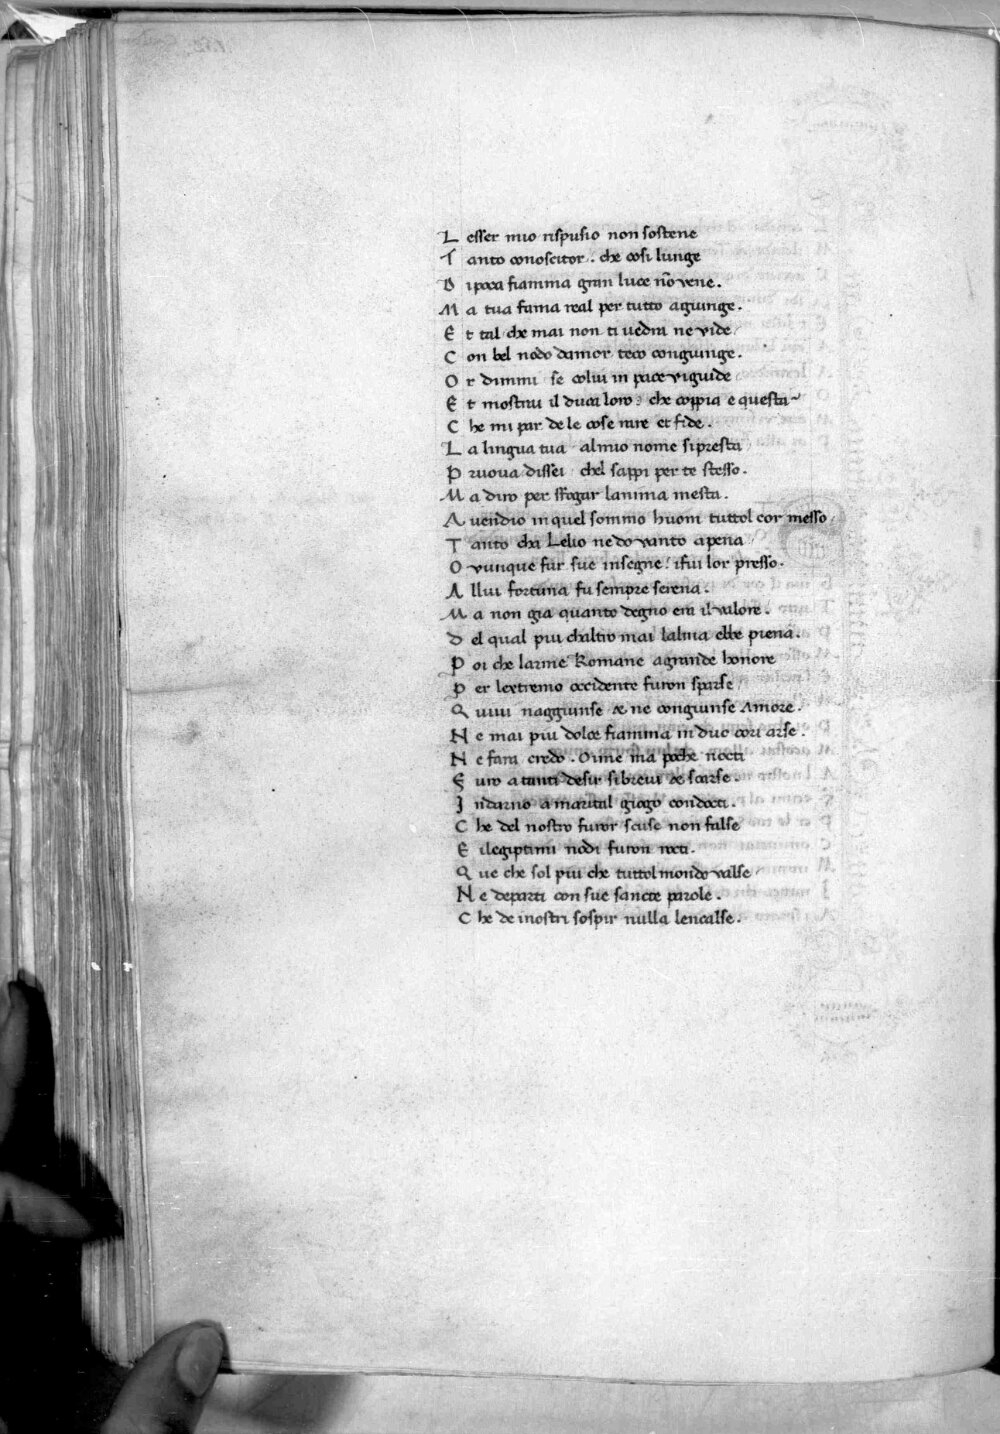 L esser mio rispusio non sostene
T anto conoscitor. che cosi lunge
D ipoca fiamma gran luce nõ vene.
M a tua fama real per tutto agiunge.
E t tal che mai non ti uedra ne vide
C on bel nodo damor teco congiunge.
O r dimmi se colui in pace viguide
E t mostraua il duca loro? che coppia e questa
C he mi par de le cose rare et fide.
L a lingua tua al mio nome si presta
P ruoua dissei chel sappi per te stesso.
M a diro per sfogar lanima mesta.
A uendio in quel sommo huom tuttol cor messo
T anto cha Lelio ne do vanto apena
O vunque fur sue insegne! ifui lor presso.
A llui fortuna fu sempre serena.
M a non gia quanto degno era il valore.
D el qual piu chaltro mai lalma ebbe piena.
P oi che larme Romane agrande honore
P er lextremo occidente furon sparse
Q uiui naggiunse & ne congiunse Amore.
N e mai piu dolce fiamma in duo cori arse.
N e fara credo. Oime ma poche nocti
F uro a tanti desir si breui & scarse.
I ndarno a marital giogo condocti.
C he del nostro furor scuse non false
E ilegiptimi nodi furon rocti.
Q ue che sol piu che tuttol mondo valse
N e departi con sue sancte parole.
C he de inostri sospir nulla lencalse.